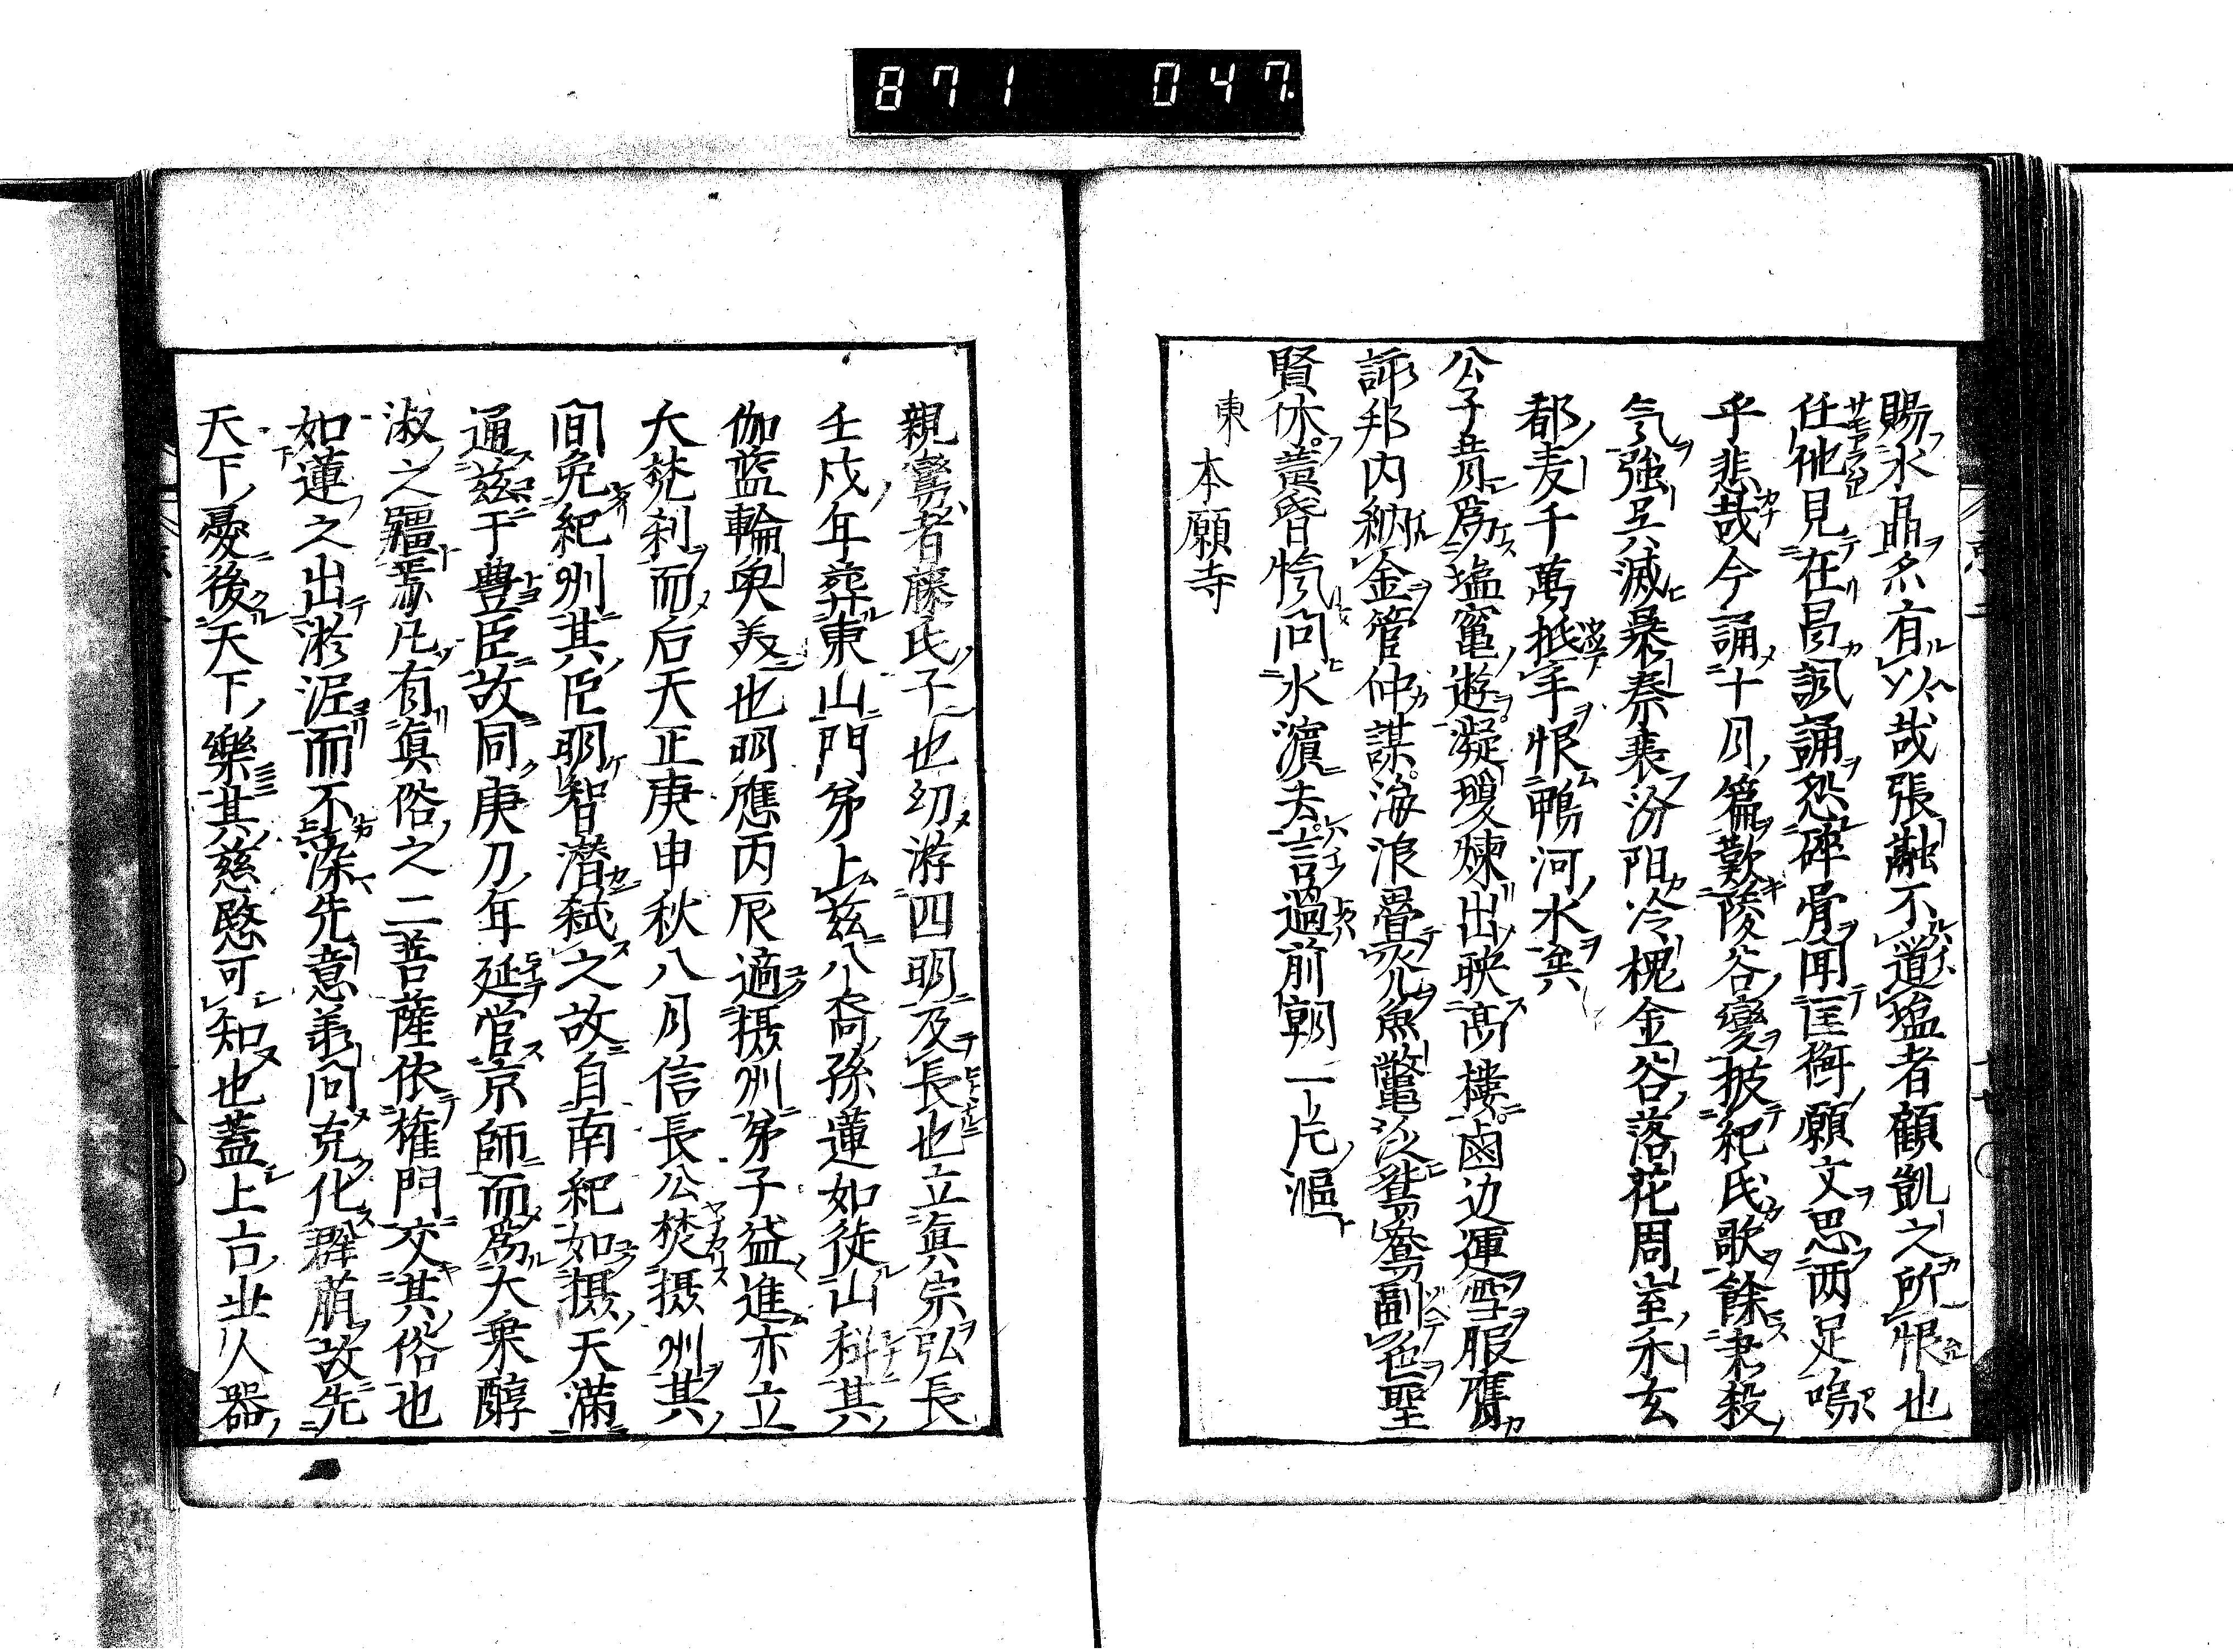 871 047.
賜水晶名有以哉張融不道塩者顧凱之所恨也
任他見在昌詞誦怨碑骨聞匡衡願文思両足嗚
乎悲哉今誦十月篇歎陵谷變披紀氏歌餘素殺
气強呉滅暴秦衰汾阳冷槐金谷落花周室禾玄
都麦千萬抵手恨鴨河水矣
公子昔為塩竃遊凝煖煉出映高樓鹵边運雪服鷹
諦邦内納金管仲謀海浪疊災魚驚沙鴛鴦副色聖
賢休黄昏怜問水濵去言過前朝一片漚
東本願寺
親鸞者藤氏子也幼游四明及長也立眞宗弘長
壬戍年葬東山門弟上玆八裔孫蓮如徙山科其
伽藍輪奥美也明應丙辰適摂州弟子益進亦立
大梵利而后天正庚申秋八月信長公焚摂州其
間免紀州其臣明智潜弑之故自南紀如摂天満
通玆于豊臣故同庚刀年延営京師而為大乗醇
淑之疆焉凡有眞俗之二菩薩依権門交其俗也
如蓮之出淤泥而不染先意善問克化群萠故先
天下憂後天下樂其慈愍可知也蓋上古业人器